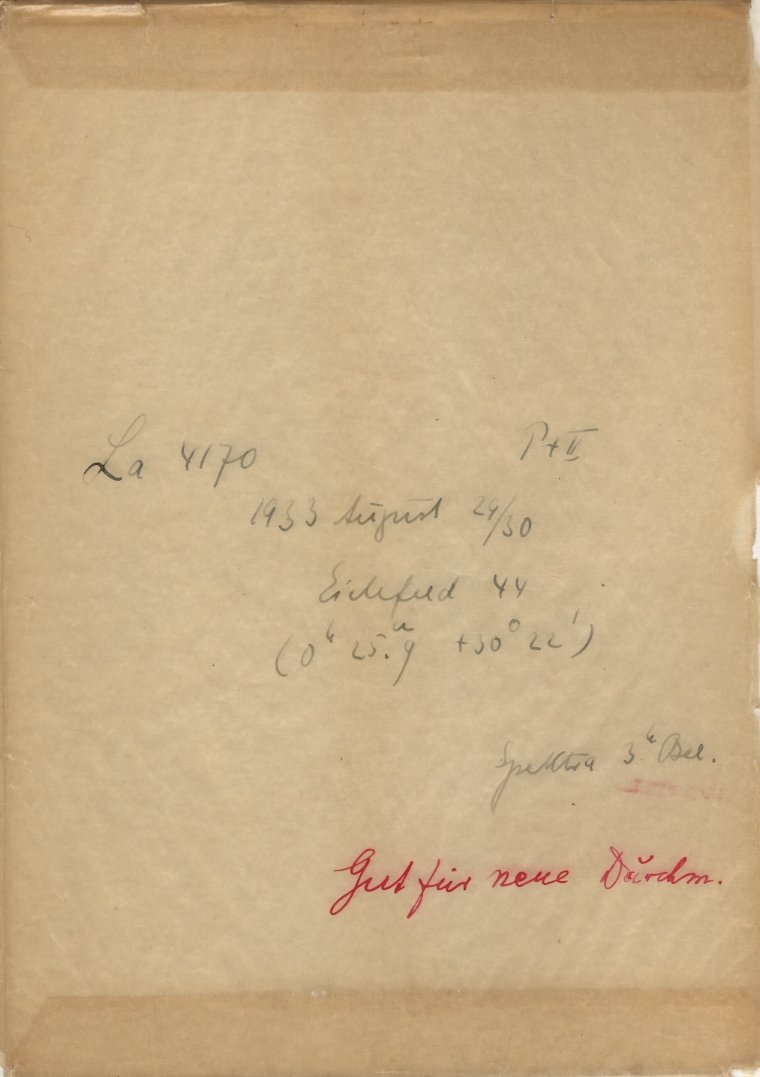 La 4170 P+II
1933 August 29/30
Eichfeld 44
(0ʰ 25.ᵐ9 +30° 22')
Spektra 3.ʰ Bel.
Gut für neue Durchm.